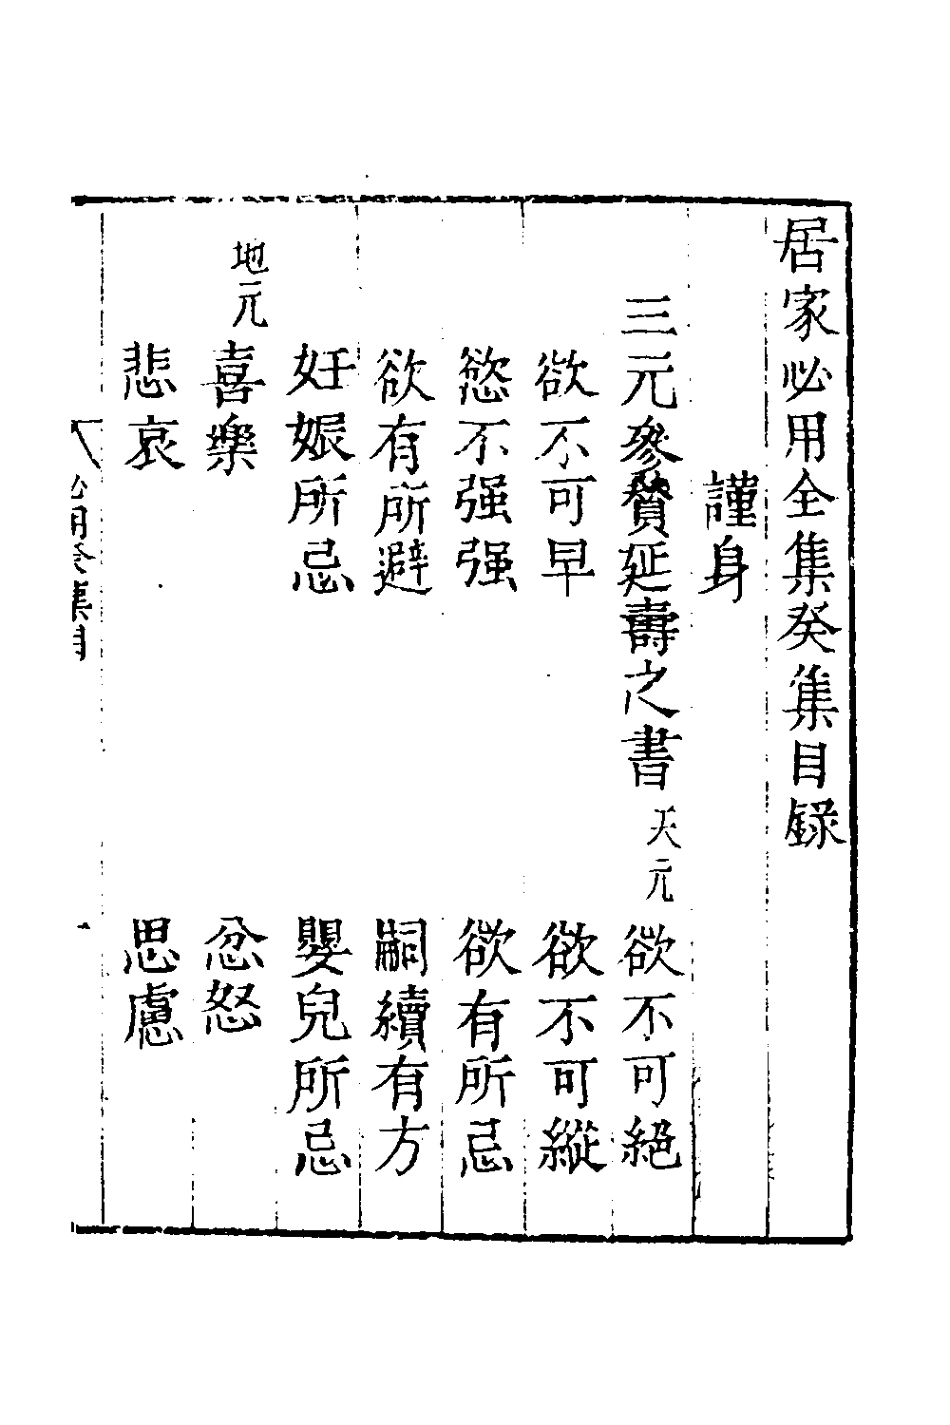 居家必用全集癸集目録
謹身
三元參贊延壽之書 天元 欲不可絕
欲不可早 欲不可縱
慾不强强 欲有所忌
欲有所避 嗣續有方
妊娠所忌 嬰兒所忌
地元 喜樂 忿怒
悲哀 思慮
必用癸集目